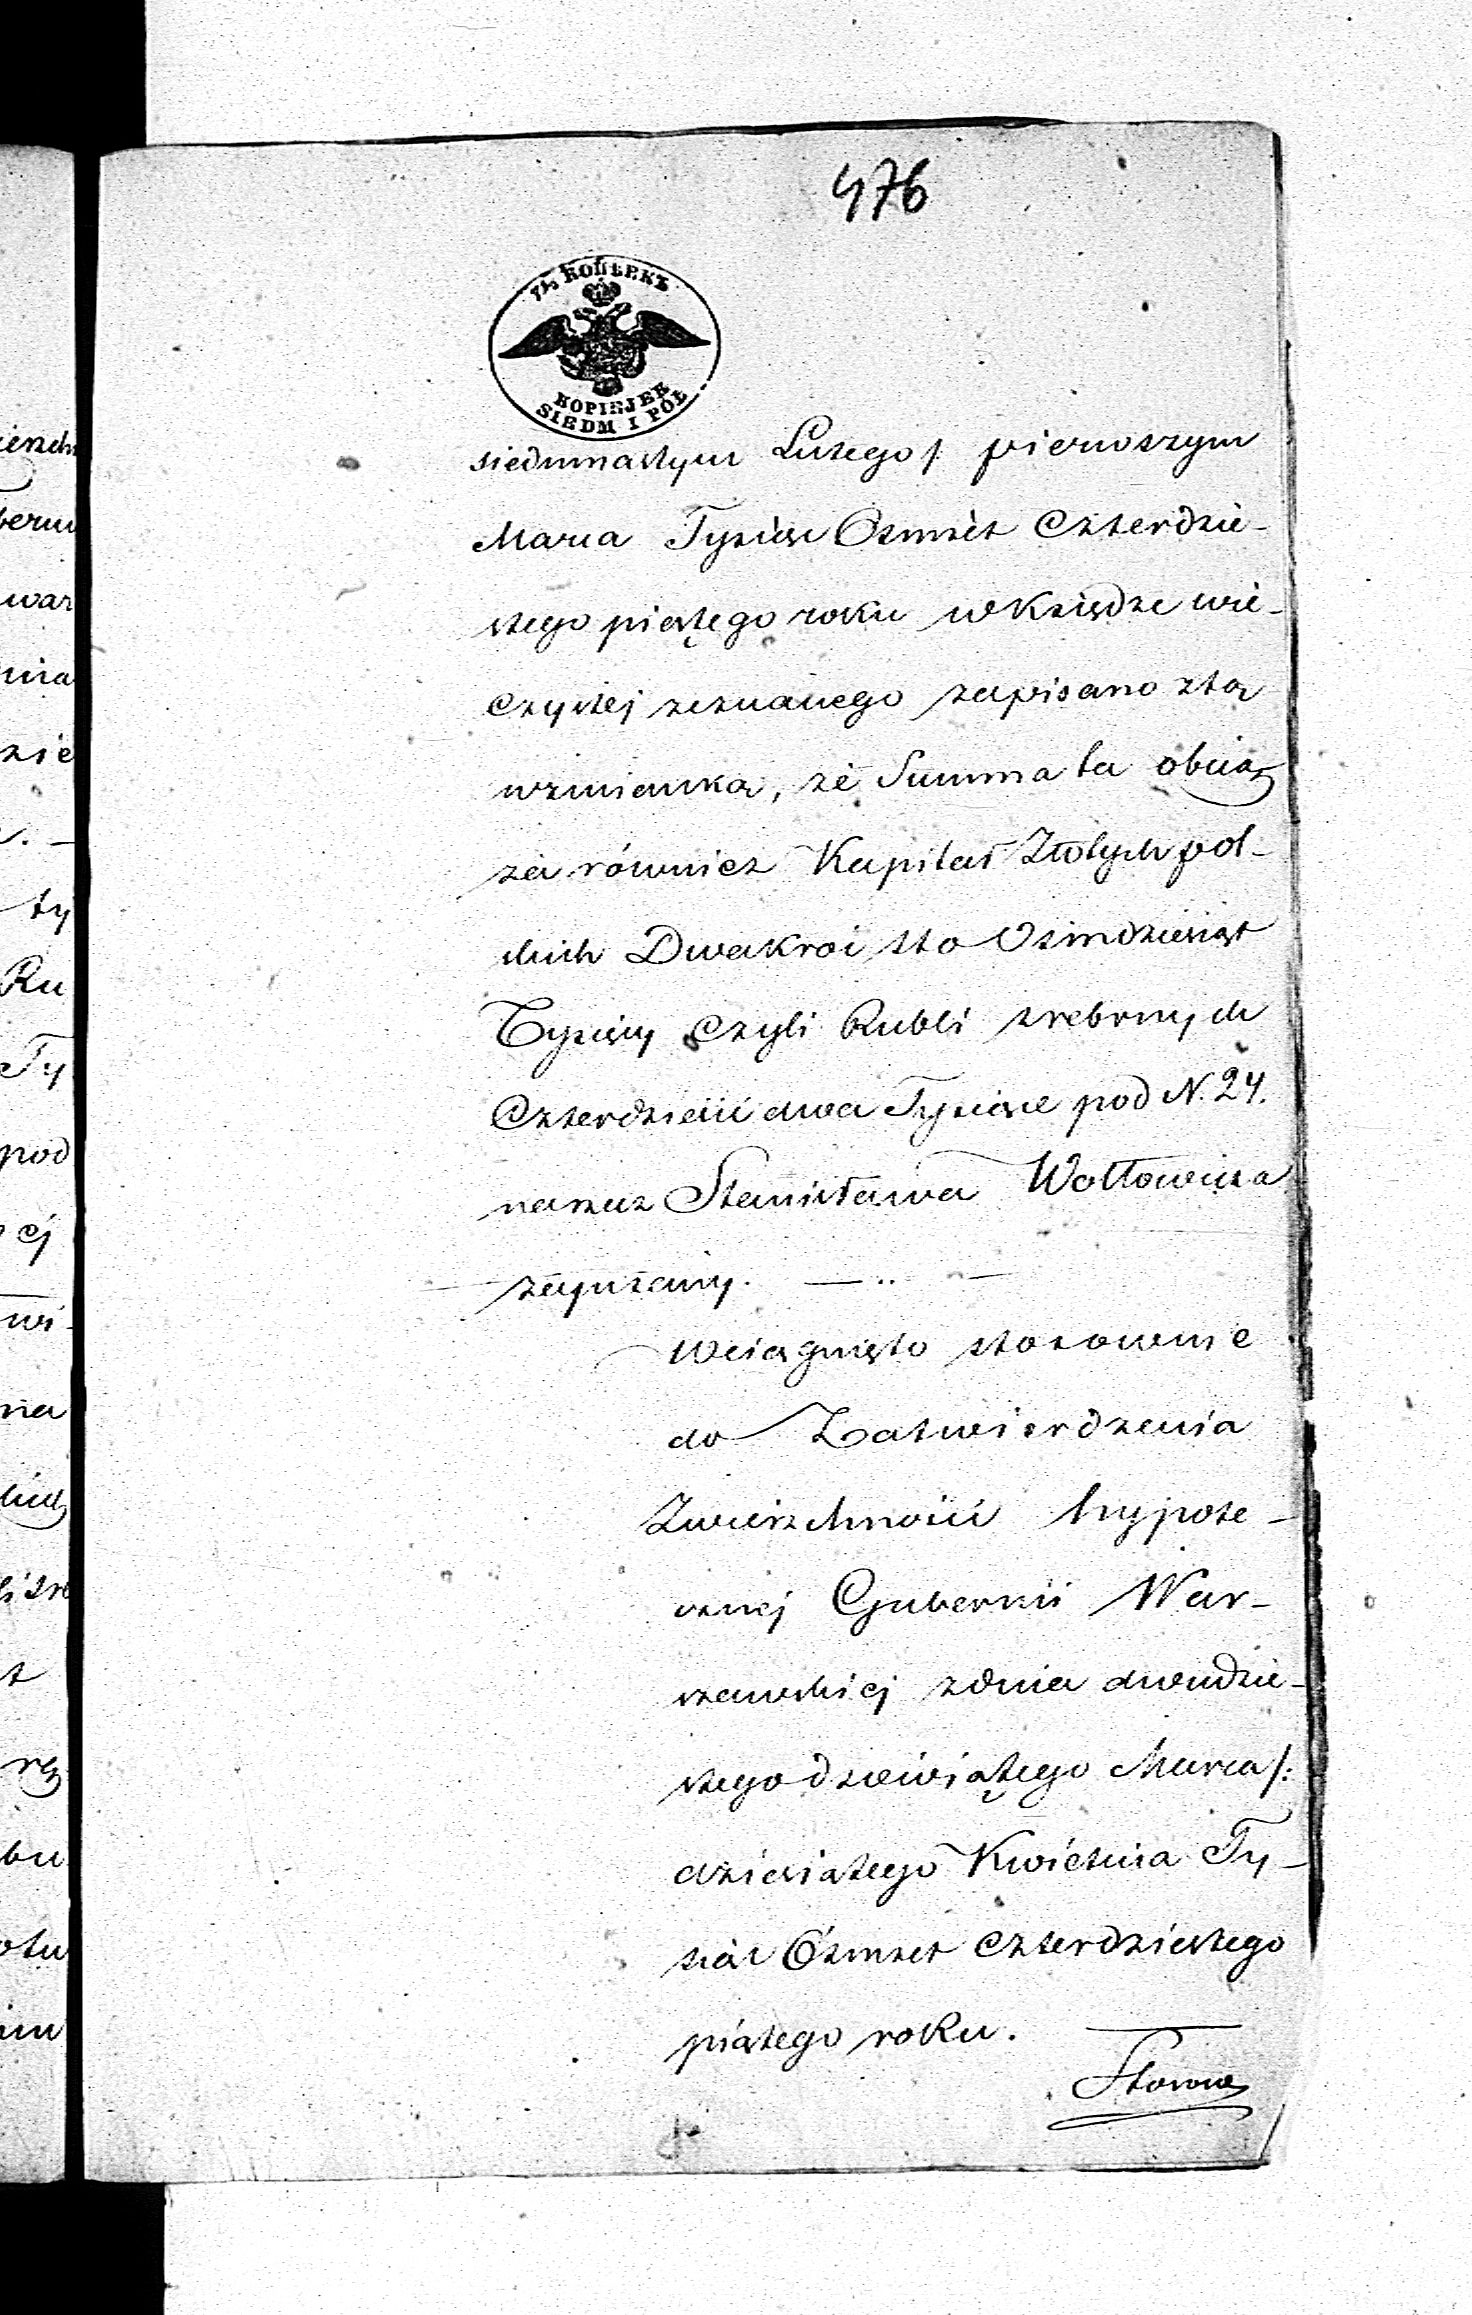 476
7½ КОПѢЕКЪ
KOPIEJEK
SIEDM I PÓŁ
siedmnastym Lutego /. pierwszym
Marca Tysiąc Osmset Czterdzie-
stego piątego roku w Księdze wie-
czystej zeznanego zapisano z tą
wzmianką, że Summa ta obcią-
ża również Kapitał Złotych pol-
skich Dwakroć sto Ośmdziesiąt
Tysięcy czyli Rubli srebrnych
Czterdzieści dwa Tysiące pod N. 24.
na rzecz Stanisława Wołłowicza
zapisany.
Wciągnięto stosownie
do Zatwierdzenia
Zwierzchności hypote-
cznej Gubernii War-
szawskiej z dnia dwudzie-
stego dziewiątego Marca /:
dziesiątego Kwietnia Ty-
siąc Ośmset czterdziestego
piątego roku.